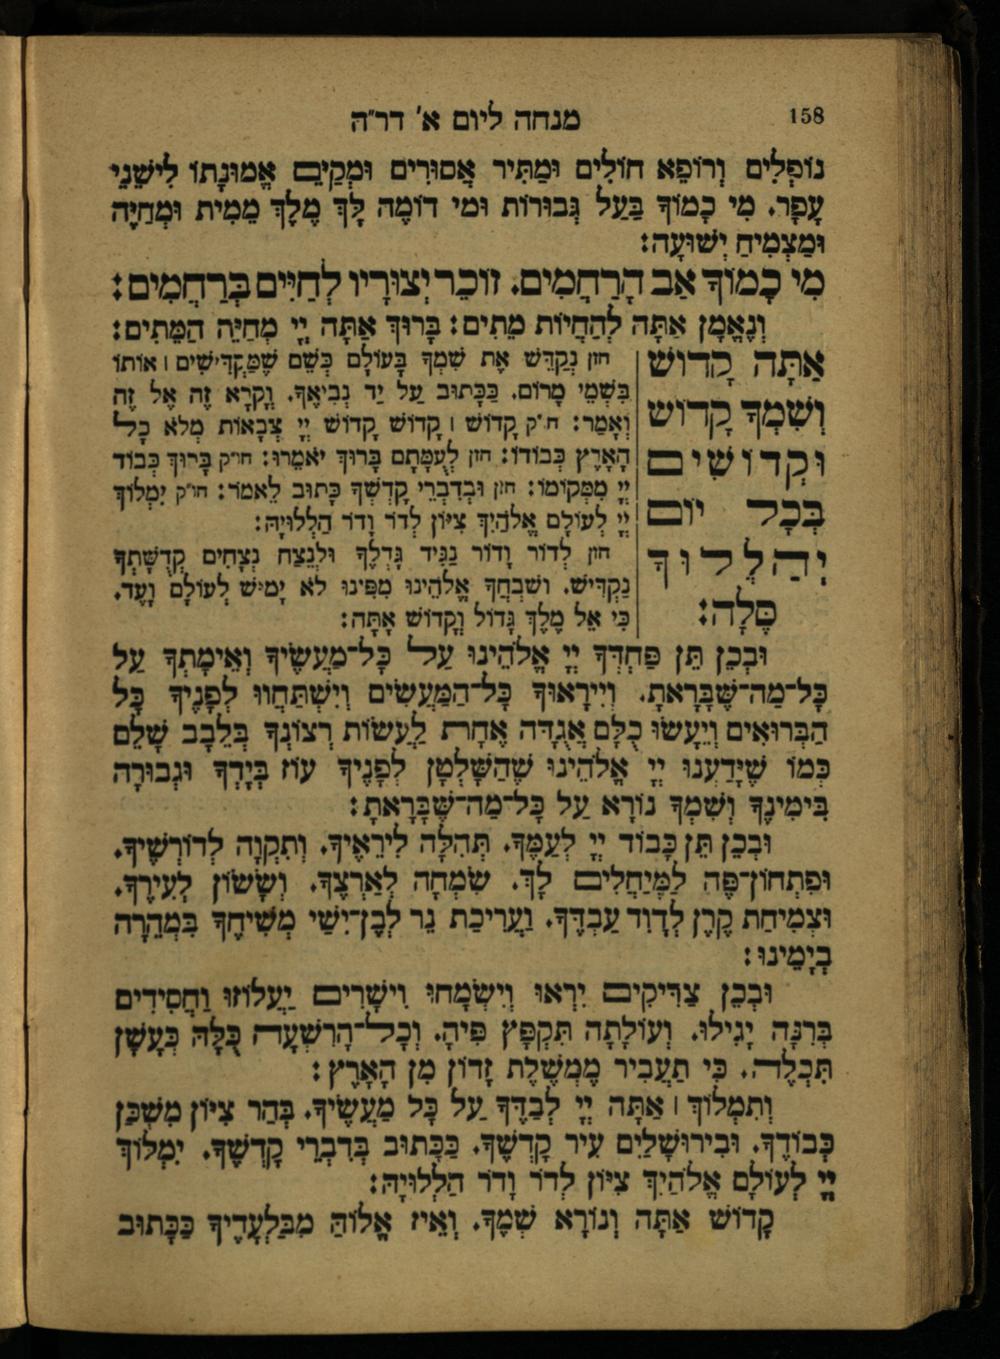 158 מנחה ליום א׳ דר״ה
נוֹפְלִים וְרוֹפֵא חוֹלִים וּמַתִּיר אֲסוּרִים וּמְקַיֵּם אֱמוּנָתוֹ לִישֵׁנֵי
עָפָר. מִי כָמוֹךָ בַּעַל גְּבוּרוֹת וּמִי דוֹמֶה לָּךְ מֶלֶךְ מֵמִית וּמְחַיֶּה
וּמַצְמִיחַ יְשׁוּעָה:
מִי כָמוֹךָ אַב הָרַחֲמִים. זוֹכֵר יְצוּרָיו לְחַיִּים בְּרַחֲמִים:
וְנֶאֱמָן אַתָּה לְהַחֲיוֹת מֵתִים: בָּרוּךְ אַתָּה יְיָ מְחַיֵּה הַמֵּתִים:
אַתָּה קָדוֹשׁ
וְשִׁמְךָ קָדוֹשׁ
וּקְדוֹשִׁים
בְּכָל יוֹם
יְהַלְלוּךָ
סֶּלָה:
חזן נְקַדֵּשׁ אֶת שִׁמְךָ בָּעוֹלָם כְּשֵׁם שֶׁמַּקְדִּישִׁים ׀ אוֹתוֹ
בִּשְׁמֵי מָרוֹם. כַּכָּתוּב עַל יַד נְבִיאֶךָ. וְקָרָא זֶה אֶל זֶה
וְאָמַר: ח״ק קָדוֹשׁ ׀ קָדוֹשׁ קָדוֹשׁ יְיָ צְבָאוֹת מְלֹא כָל
הָאָרֶץ כְּבוֹדוֹ: חזן לְעֻמָּתָם בָּרוּךְ יֹאמֵרוּ: חו״ק בָּרוּךְ כְּבוֹד
יְיָ מִמְּקוֹמוֹ: חזן וּבְדִבְרֵי קָדְשְׁךָ כָּתוּב לֵאמֹר: חו״ק יִמְלוֹךְ
יְיָ לְעוֹלָם אֱלֹהַיִךְ צִיּוֹן לְדֹר וָדֹר הַלְלוּיָהּ:
חזן לְדוֹר וָדוֹר נַגִּיד גָּדְלֶךָ וּלְנֵצַח נְצָחִים קְדֻשָּׁתְךָ
נַקְדִּישׁ. וְשִׁבְחֲךָ אֱלֹהֵינוּ מִפִּינוּ לֹא יָמִישׁ לְעוֹלָם וָעֶד.
כִּי אֵל מֶלֶךְ גָּדוֹל וְקָדוֹשׁ אָתָּה:
וּבְכֵן תֵּן פַּחְדְּךָ יְיָ אֱלֹהֵינוּ עַל כָּל־מַעֲשֶׂיךָ וְאֵימָתְךָ עַל
כָּל־מַה־שֶּׁבָּרָאתָ. וְיִירָאוּךָ כָּל־הַמַּעֲשִׂים וְיִשְׁתַּחֲווּ לְפָנֶיךָ כָּל
הַבְּרוּאִים וְיֵעָשׂוּ כֻלָּם אֲגֻדָּה אֶחָת לַעֲשׂוֹת רְצוֹנְךָ בְּלֵבָב שָׁלֵם
כְּמוֹ שֶׁיָּדַעְנוּ יְיָ אֱלֹהֵינוּ שֶׁהַשָּׁלְטָן לְפָנֶיךָ עוֹז בְּיָדְךָ וּגְבוּרָה
בִּימִינֶךָ וְשִׁמְךָ נוֹרָא עַל כָּל־מַה־שֶּׁבָּרָאתָ:
וּבְכֵן תֵּן כָּבוֹד יְיָ לְעַמֶּךָ. תְּהִלָּה לִירֵאֶיךָ. וְתִקְוָה לְדוֹרְשֶׁיךָ.
וּפִתְחוֹן־פֶּה לַמְיַחֲלִים לָךְ. שִׂמְחָה לְאַרְצֶךָ. וְשָׂשׂוֹן לְעִירֶךָ.
וּצְמִיחַת קֶרֶן לְדָוִד עַבְדֶּךָ. וַעֲרִיכַת נֵר לְבֶן־יִשַׁי מְשִׁיחֶךָ בִּמְהֵרָה
בְיָמֵינוּ:
וּבְכֵן צַדִּיקִים יִרְאוּ וְיִשְׂמָחוּ וִישָׁרִים יַעֲלוֹזוּ וַחֲסִידִים
בְּרִנָּה יָגִילוּ. וְעוֹלָתָה תִּקְפָּץ פִּיהָ. וְכָל־הָרִשְׁעָה כֻּלָּהּ כְּעָשָׁן
תִּכְלֶה. כִּי תַעֲבִיר מֶמְשֶׁלֶת זָדוֹן מִן הָאָרֶץ:
וְתִמְלוֹךְ ׀ אַתָּה יְיָ לְבַדֶּךָ עַל כָּל מַעֲשֶׂיךָ. בְּהַר צִיּוֹן מִשְׁכַּן
כְּבוֹדֶךָ. וּבִירוּשָׁלַיִם עִיר קָדְשֶׁךָ. כַּכָּתוּב בְּדִבְרֵי קָדְשֶׁךָ. יִמְלוֹךְ
יְיָ לְעוֹלָם אֱלֹהַיִךְ צִיּוֹן לְדֹר וָדֹר הַלְלוּיָהּ:
קָדוֹשׁ אַתָּה וְנוֹרָא שְׁמֶךָ. וְאֵין אֱלוֹהַּ מִבַּלְעָדֶיךָ כַּכָּתוּב